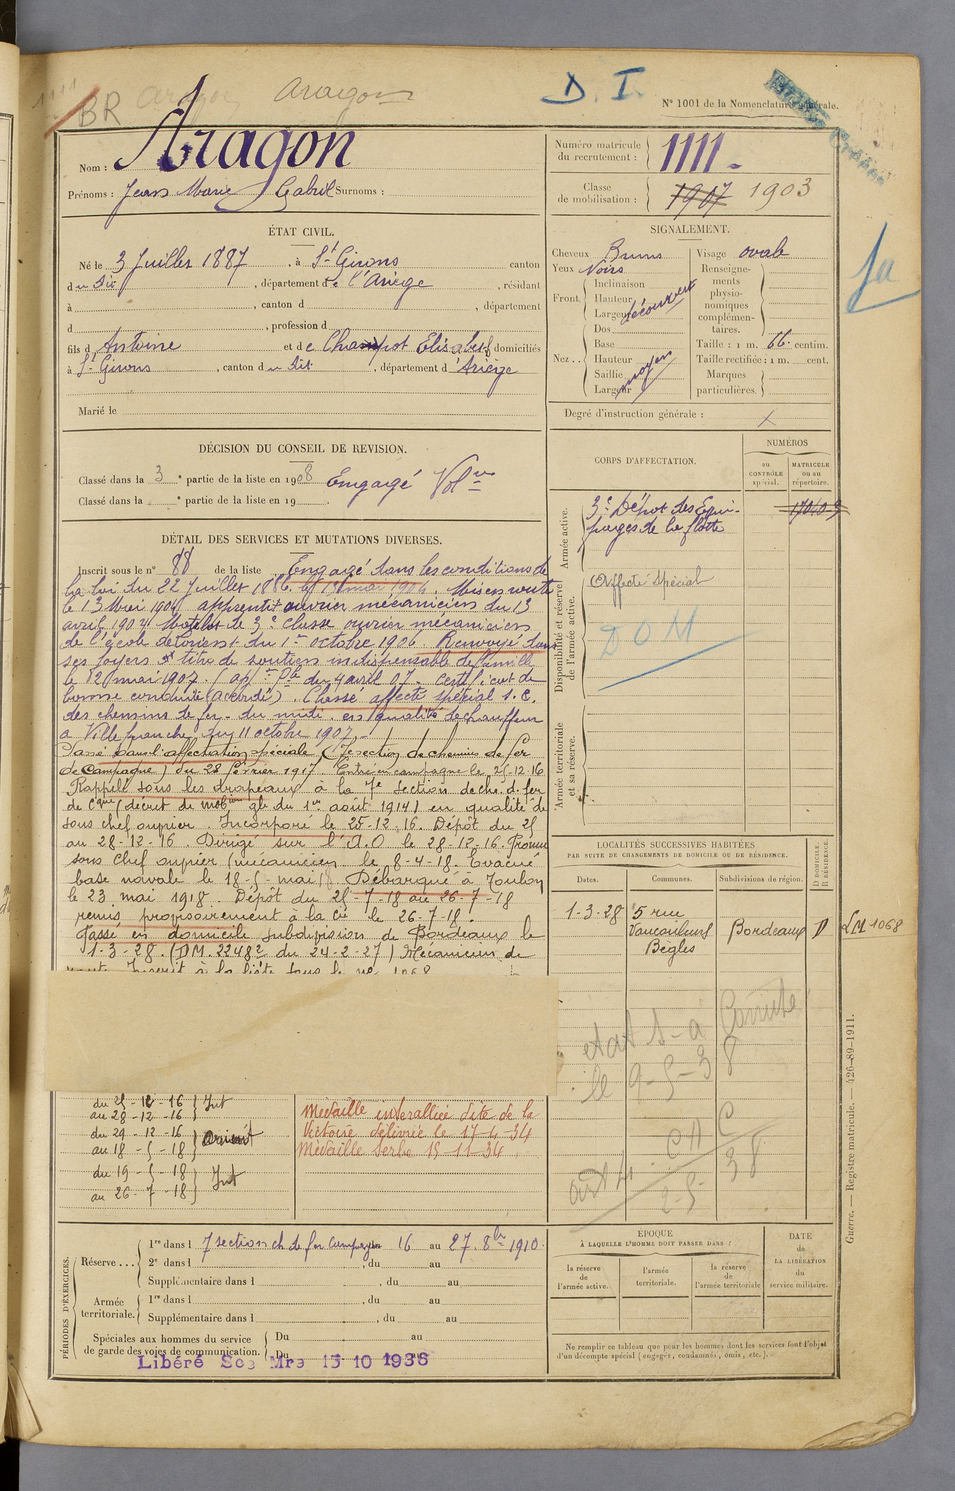 BR Aragon Aragon D. I.
N° 1001 de la Nomenclature générale.
Nom : Aragon
Prénoms : Jean Marie Gabriel Surnoms :
Numéro matricule du recrutement : 1111
Classe de mobilisation : 1907 1903
ÉTAT CIVIL.
Né le 3 Juillet 1887, à St Girons canton
du dit, département de l'Ariège, résidant
à, canton d, département
d, profession d
fils d Antoine et de Elisabeth domiciliés
à St Girons, canton du dit, département d'Ariège
Marié le
SIGNALEMENT.
Cheveux Bruns Visage ovale
Yeux Noirs
Front. Inclinaison
Hauteur
Largeur découvert
Nez . . Dos
Base
Hauteur
Saillie
Largeur moyen
Renseignements physionomiques complémentaires.
Taille : 1 m. 66 centim.
Taille rectifiée : 1 m. cent.
Marques particulières.
Degré d'instruction générale : X
DÉCISION DU CONSEIL DE REVISION.
Classé dans la 3e partie de la liste en 1908 Engagé Volre
Classé dans la e partie de la liste en 19 .
CORPS D'AFFECTATION.
NUMÉROS
au CONTRÔLE spécial.
MATRICULE ou au répertoire.
Armée active.
3e Dépôt des Equipages de la flotte
Disponibilité et réserve de l'armée active.
Affecté Spécial
D O M
Armée territoriale et sa réserve.
DÉTAIL DES SERVICES ET MUTATIONS DIVERSES.
Inscrit sous le n° 88 de la liste Engagé dans les conditions de
la loi du 22 Juillet 1886. le 13 mai 1904. Mis en route
le 13 Mai 1904 apprenti ouvrier mécanicien du 13
avril 1904 Matelot de 3e classe ouvrier mécanicien
de l'école de Lorient du 1er octobre 1906. Renvoyé dans
ses foyers à titre de soutien indispensable de famille
le 12 mai 1907. du 4 avril 07. Certificat de
bonne conduite (accordé). Classé affecté spécial S. C.
des chemins de fer du midi en qualité de chauffeur
à Villefranche du 11 octobre 1907.
Passé dans l'affectation spéciale (7e section de chemins de fer
de Campagne) du 28 février 1917. Entré en campagne le 25-12-16
Rappelé sous les drapeaux à la 7e Section de ch. d. fer
de Cgne (décret de mobon gle du 1er août 1914) en qualité de
sous chef ouvrier. Incorporé le 25-12-16. Dépôt du 25
au 28-12-16. Dirigé sur l'A.O le 28-12-16. Promu
sous chef ouvrier (mécanicien le 8-4-18. Evacué
base navale le 18-5-mai 18 Débarqué à Toulon
le 23 mai 1918. Dépôt du 25-7-18 au 26-7-18
remis provisoirement à la Cie le 26-7-18.
Passé en domicile subdivision de Bordeaux le
1-3-28. (DM. 22482 du 24-2-27) Mécanicien de
route Inscrit à la liste sous le no 1068
LOCALITÉS SUCCESSIVES HABITÉES
PAR SUITE DE CHANGEMENTS DE DOMICILE OU DE RÉSIDENCE.
Dates. Communes. Subdivisions de région. D DOMICILE. R RÉSIDENCE.
1-3-28 5 rue Vaucouleurs Bègles Bordeaux D LM 1068
le 9-5-38
2-5-38
du 25-12-16 } Int
au 28-12-16
du 29-12-16 } Orient
au 18-5-18
du 19-5-18 } Int
au 26-7-18
Médaille interalliée dite de la
Victoire délivrée le 17-4-34
Médaille Serbe 15-11-34
PÉRIODES D'EXERCICES.
Réserve . . . 1re dans l 7 section ch de fer Campagne 16 au 27. 8bre 1910.
2e dans l, du au
Supplémentaire dans l, du au
Armée territoriale. 1re dans l, du au
Supplémentaire dans l, du au
Spéciales aux hommes du service de garde des voies de communication. Du au
Du
Libéré Ser Mre 15 10 1936
ÉPOQUE
À LAQUELLE L'HOMME DOIT PASSER DANS :
la réserve de l'armée active.
l'armée territoriale.
la réserve de l'armée territoriale
DATE de LA LIBÉRATION du service militaire.
Ne remplir ce tableau que pour les hommes dont les services font l'objet
d'un décompte spécial (engagés, condamnés, omis, etc.).
Guerre. — Registre matricule. — 426-89-1911.